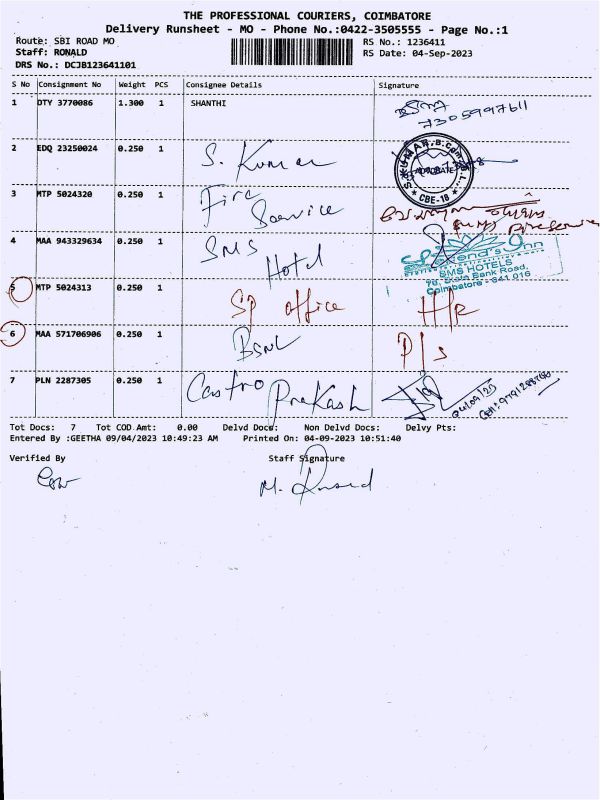 THE PROFESSIONAL COURIERS, COIMBATORE
Delivery Runsheet - MO - Phone No.:0422-3505555 - Page No.:1
Route: SBI ROAD MO RS No.: 1236411
Staff: RONALD RS Date: 04-Sep-2023
DRS No.: DCJB123641101
S No Consignment No Weight PCS Consignee Details Signature
1 DTY 3770086 1.300 1 SHANTHI
7305997611
2 EDQ 23250024 0.250 1 S. Kumar
ADVOCATE
CBE-18
3 MTP 5024320 0.250 1 Fire Service
4 MAA 943329634 0.250 1 SMS Hotel
SMS HOTELS
State Bank Road,
Coimbatore - 641 018
5 MTP 5024313 0.250 1 SP office H/R
6 MAA 571706906 0.250 1 BSNL D/S
7 PLN 2287305 0.250 1 Castro Prakash
04/09/23
Tot Docs: 7 Tot COD Amt: 0.00 Delvd Docs: Non Delvd Docs: Delvy Pts:
Entered By :GEETHA 09/04/2023 10:49:23 AM Printed On: 04-09-2023 10:51:40
Verified By Staff Signature